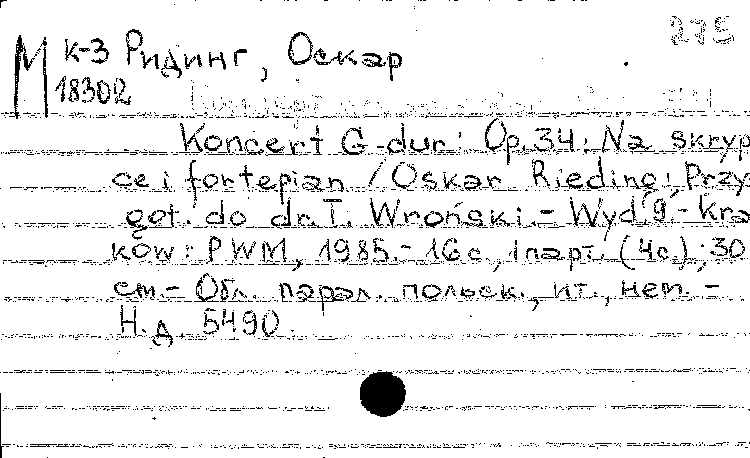 275
М к-3 Ридинг, Оскар
18302
Koncert G-dur: Op. 34: Na skryp
ce i fortepian / Oskar Rieding; Przy
got. do dr. T. Wroński. - Wyd. 9. - Kra
ków: PWM, 1985. - 16 с., 1 парт. (4 с.); 30
cm. - Обл. парал. польск., ит., нем. -
Н. д. 5490.